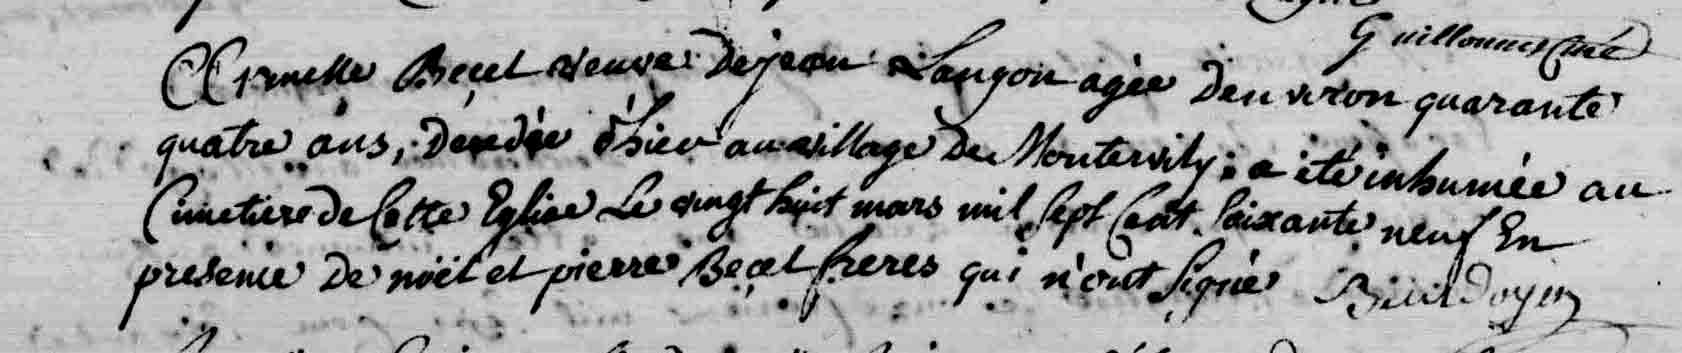 Guillonnet Curé
Armelle Beçel veuve de jean Langon agée d'environ quarante
quatre ans, décédée d'hier au village de Montervily, a été inhumée au
Cimetiere de Cette Eglise Le vingt huit mars mil Sept Cent Soixante neuf En
presence de noël et pierre Beçel freres qui n'ont Signé